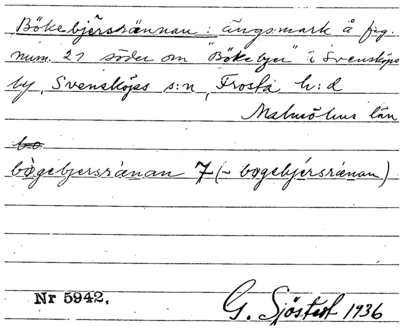 Bökebjersrännan: ängsmark å fig.
num. 21 söder om "Bökebjer" i Svensköps
by, Svensköps s:n, Frosta h:d
Malmöhus län
bo
bögebjersränan 7 (- bogebjérsränan)
Nr 5942. G. Sjöstedt 1936